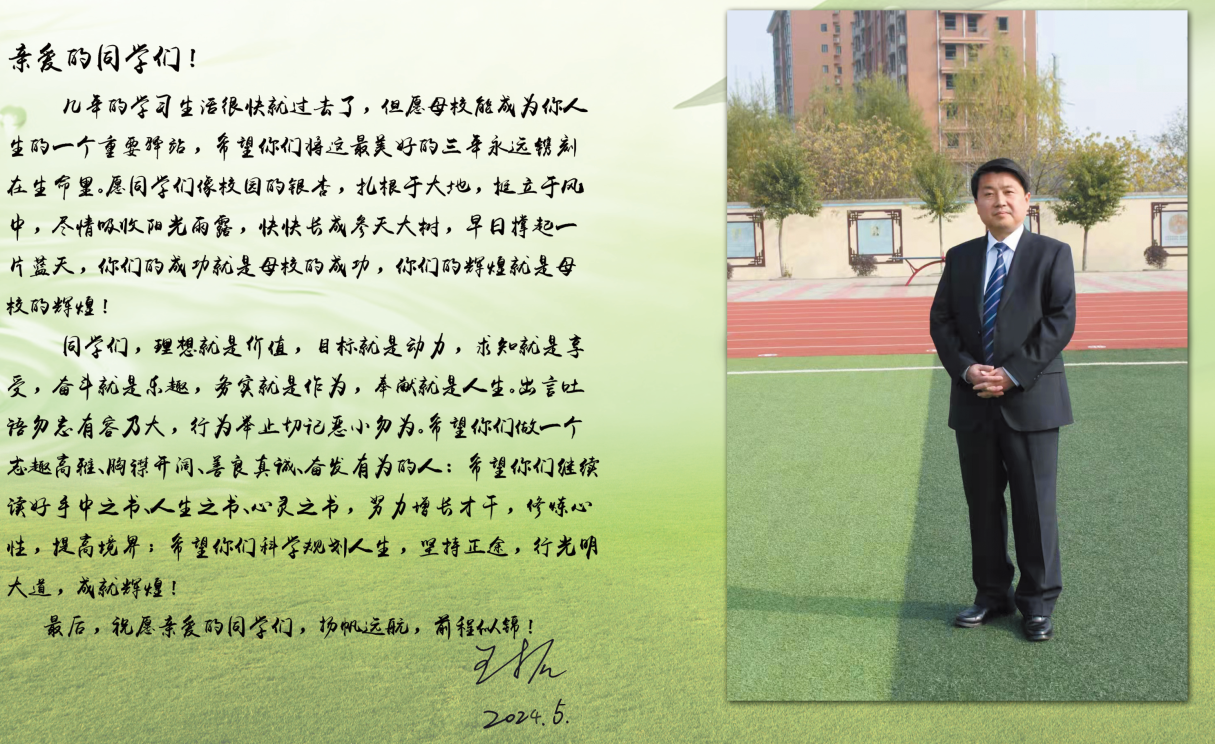 亲爱的同学们！
几年的学习生活很快就过去了，但愿母校能成为你人
生的一个重要驿站，希望你们将这最美好的三年永远镌刻
在生命里。愿同学们像校园的银杏，扎根于大地，挺立于风
中，尽情吸收阳光雨露，快快长成参天大树，早日撑起一
片蓝天，你们的成功就是母校的成功，你们的辉煌就是母
校的辉煌！
同学们，理想就是价值，目标就是动力，求知就是享
受，奋斗就是乐趣，务实就是作为，奉献就是人生。出言吐
语勿忘有容乃大，行为举止切记恶小勿为。希望你们做一个
志趣高雅、胸襟开阔、善良真诚、奋发有为的人；希望你们继续
读好手中之书、人生之书、心灵之书，努力增长才干，修炼心
性，提高境界；希望你们科学规划人生，坚持正途，行光明
大道，成就辉煌！
最后，祝愿亲爱的同学们，扬帆远航，前程似锦！
2024.5.